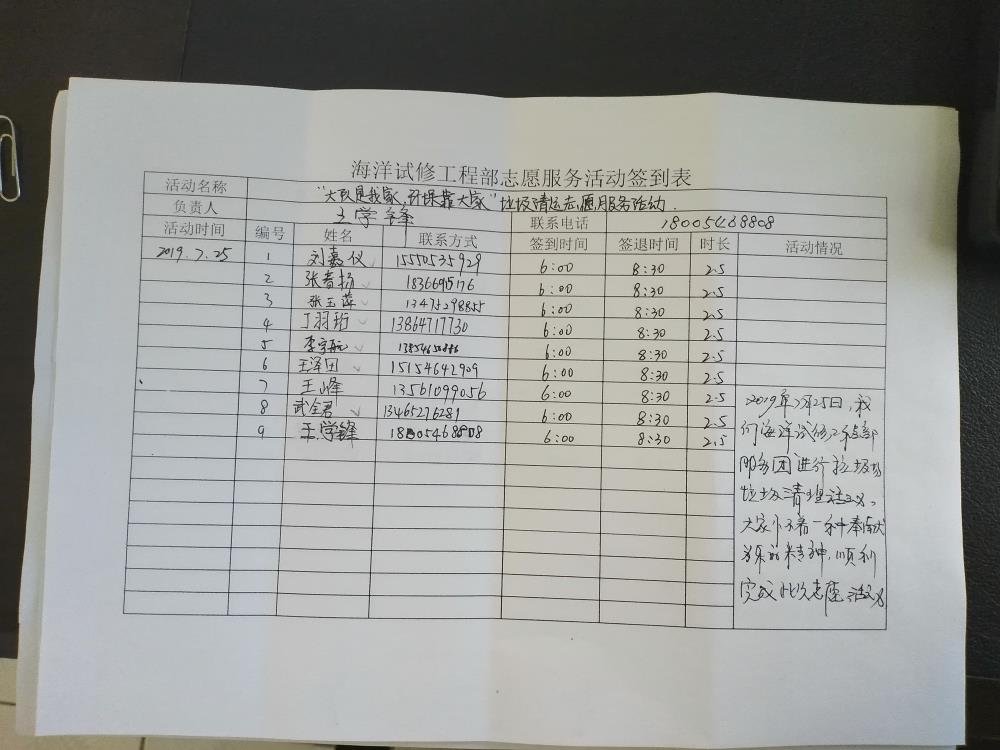 海洋试修工程部志愿服务活动签到表
活动名称 "大队是我家,环保靠大家"垃圾清运志愿服务活动.
负责人 王学锋 联系电话 18005468808
活动时间 编号 姓名 联系方式 签到时间 签退时间 时长 活动情况
2019.7.25 1 刘嘉仪 15550535929 6:00 8:30 2.5
2 张春扬 6:00 8:30 2.5
3 张玉萍 13475298855 6:00 8:30 2.5
4 丁羽珩 13864717730 6:00 8:30 2.5
5 李宇航 6:00 8:30 2.5
6 王泽田 15154642909 6:00 8:30 2.5
7 王峰 13561099056 6:00 8:30 2.5
8 武全君 13465276281 6:00 8:30 2.5
9 王学锋 18005468808 6:00 8:30 2.5
2019年7月25日,我
们海洋试修工程部
进行垃圾场
垃圾清理活动。
大家
的精神,顺利
完成此次志愿活动